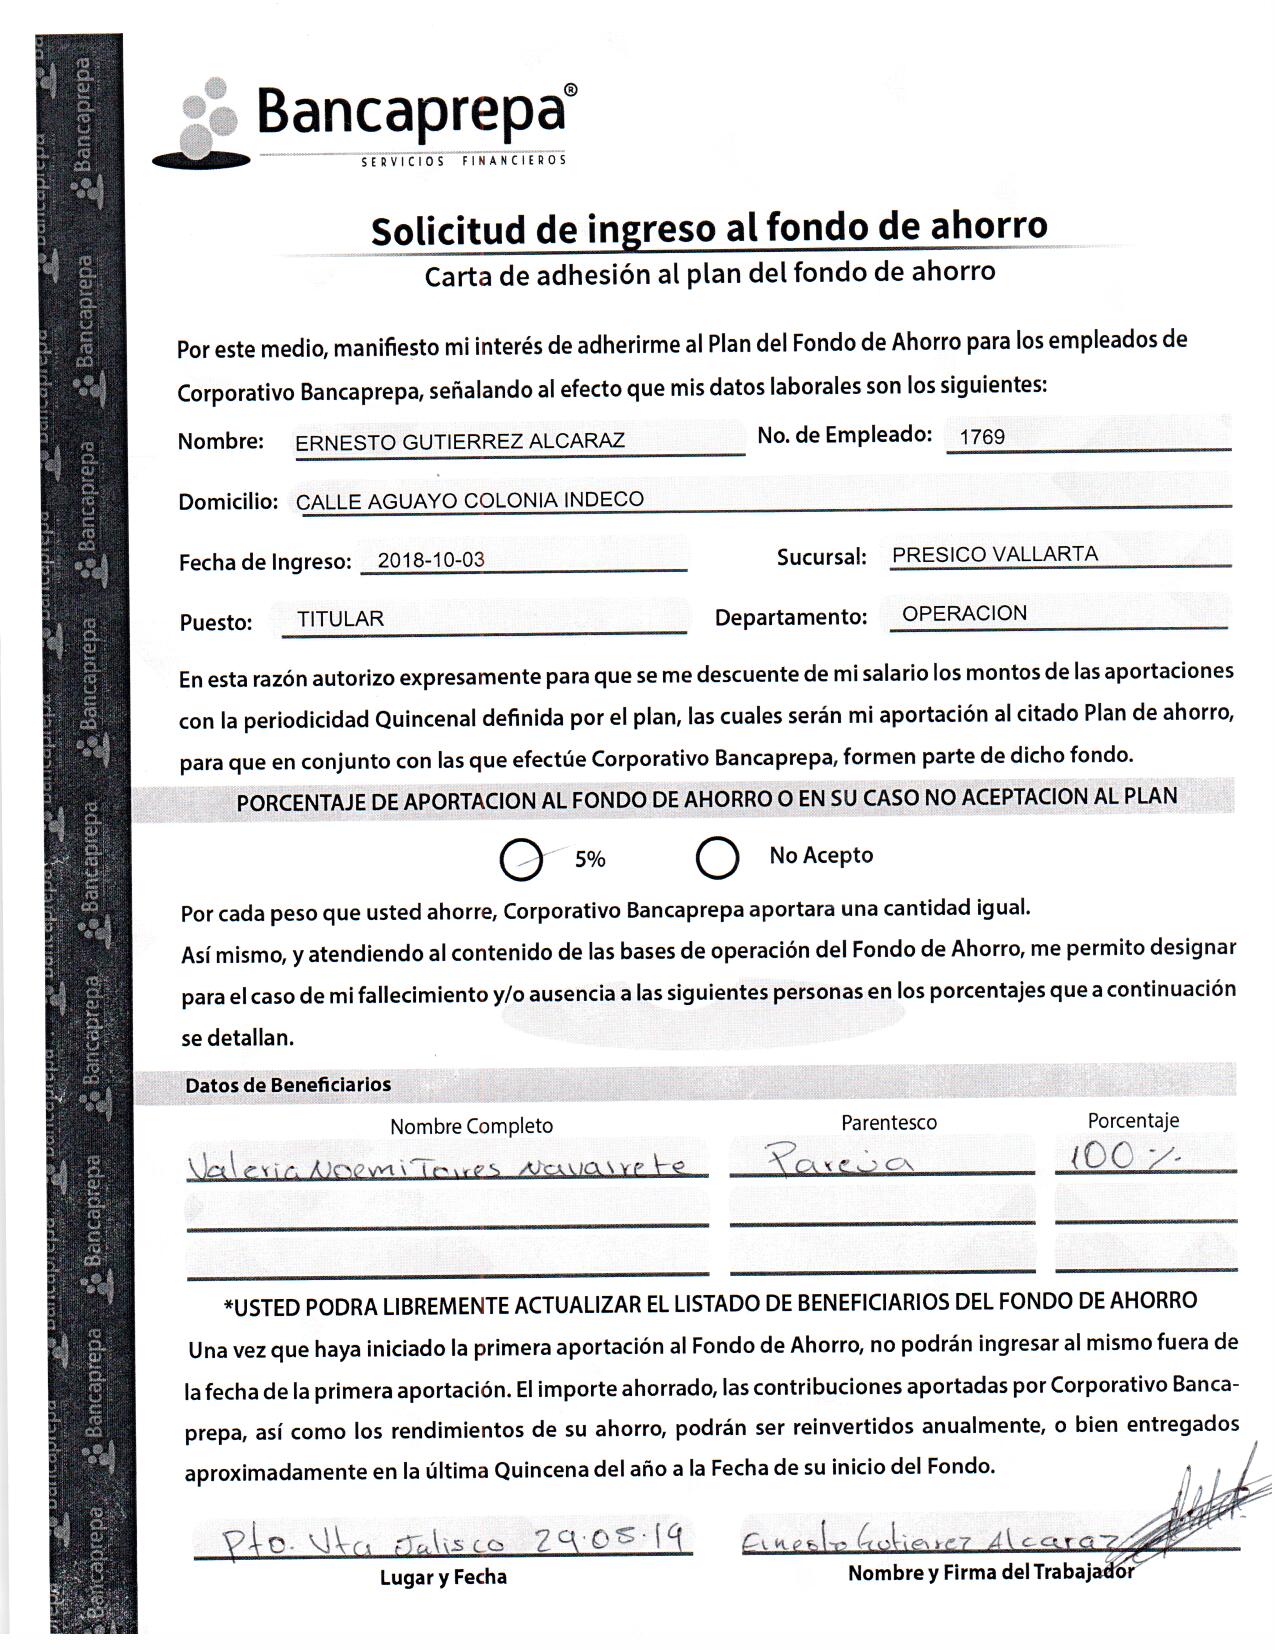 Bancaprepa®
SERVICIOS FINANCIEROS
Solicitud de ingreso al fondo de ahorro
Carta de adhesión al plan del fondo de ahorro
Por este medio, manifiesto mi interés de adherirme al Plan del Fondo de Ahorro para los empleados de
Corporativo Bancaprepa, señalando al efecto que mis datos laborales son los siguientes:
Nombre: ERNESTO GUTIERREZ ALCARAZ No. de Empleado: 1769
Domicilio: CALLE AGUAYO COLONIA INDECO
Fecha de Ingreso: 2018-10-03 Sucursal: PRESICO VALLARTA
Puesto: TITULAR Departamento: OPERACION
En esta razón autorizo expresamente para que se me descuente de mi salario los montos de las aportaciones
con la periodicidad Quincenal definida por el plan, las cuales serán mi aportación al citado Plan de ahorro,
para que en conjunto con las que efectúe Corporativo Bancaprepa, formen parte de dicho fondo.
PORCENTAJE DE APORTACION AL FONDO DE AHORRO O EN SU CASO NO ACEPTACION AL PLAN
5% No Acepto
Por cada peso que usted ahorre, Corporativo Bancaprepa aportara una cantidad igual.
Así mismo, y atendiendo al contenido de las bases de operación del Fondo de Ahorro, me permito designar
para el caso de mi fallecimiento y/o ausencia a las siguientes personas en los porcentajes que a continuación
se detallan.
Datos de Beneficiarios
Nombre Completo Parentesco Porcentaje
Valeria Noemi Torres Navarrete Pareja 100 %
*USTED PODRA LIBREMENTE ACTUALIZAR EL LISTADO DE BENEFICIARIOS DEL FONDO DE AHORRO
Una vez que haya iniciado la primera aportación al Fondo de Ahorro, no podrán ingresar al mismo fuera de
la fecha de la primera aportación. El importe ahorrado, las contribuciones aportadas por Corporativo Banca-
prepa, así como los rendimientos de su ahorro, podrán ser reinvertidos anualmente, o bien entregados
aproximadamente en la última Quincena del año a la Fecha de su inicio del Fondo.
Pto. Vta Jalisco 29.05.19 Ernesto Gutierrez Alcaraz
Lugar y Fecha Nombre y Firma del Trabajador